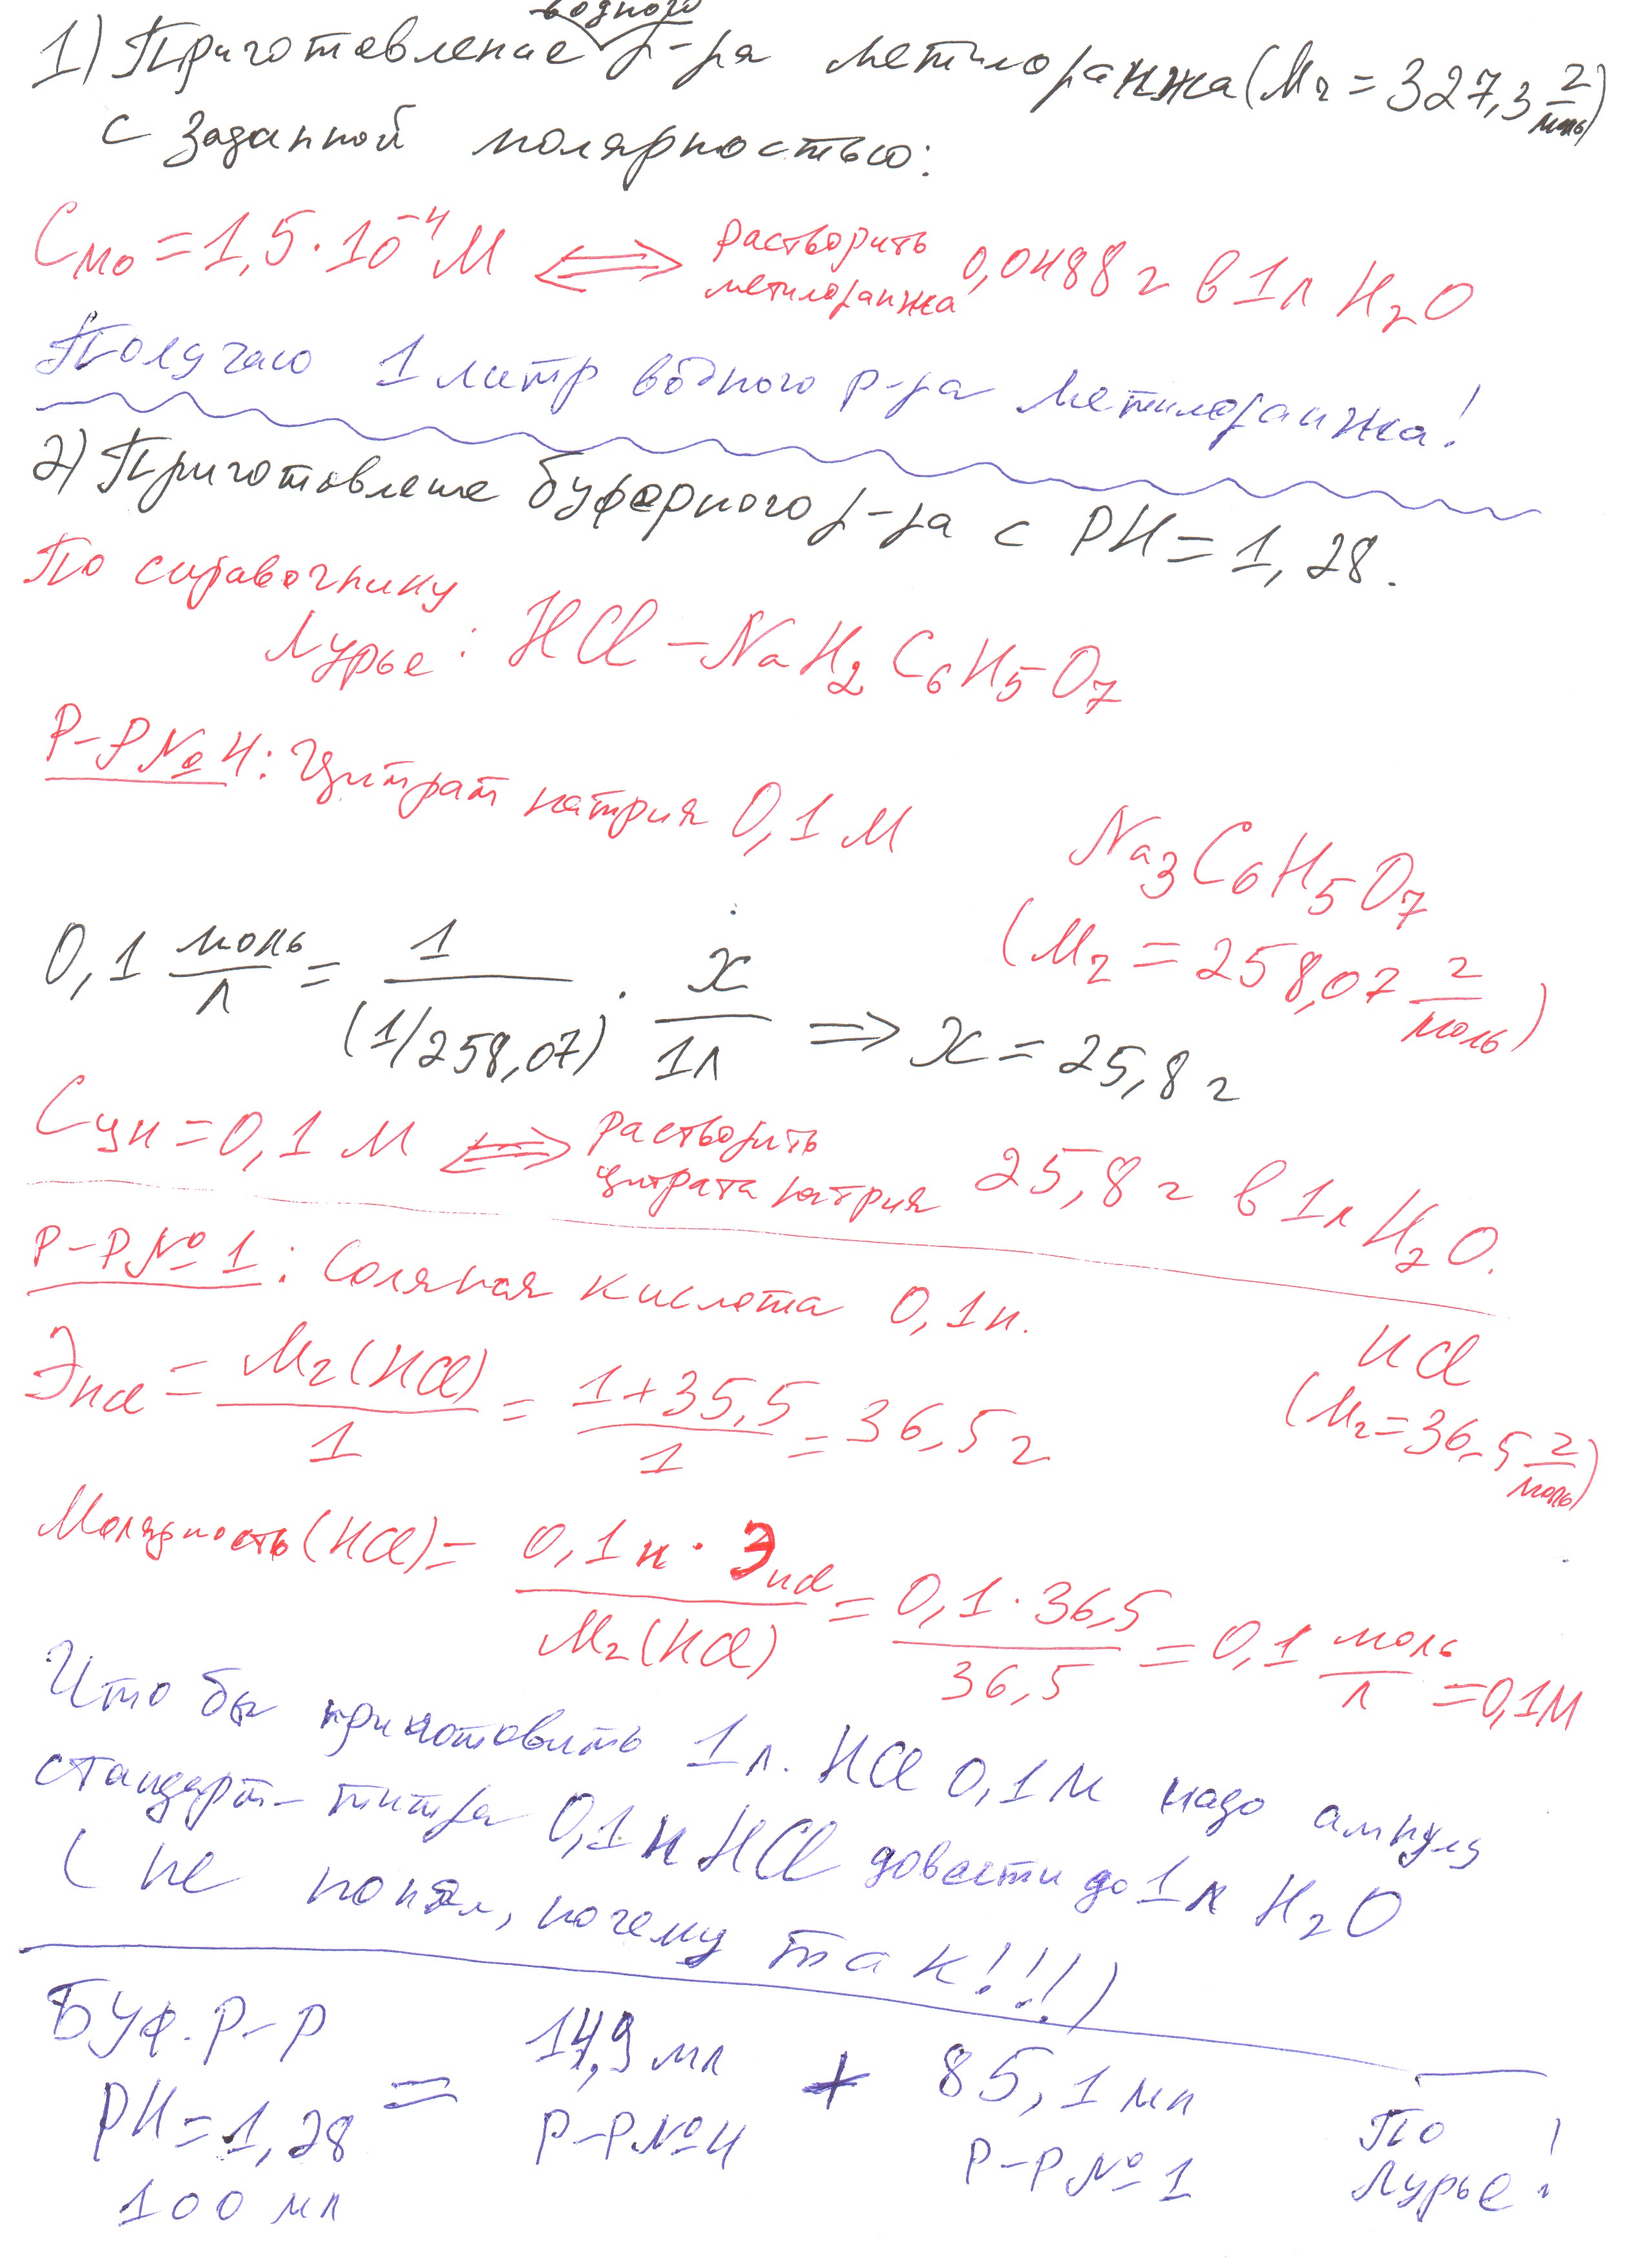 водного
1) Приготовление р-ра метилоранжа (Mr = 327,3 г/моль)
с заданной молярностью:
Cмо = 1,5·10⁻⁴ М ⟺ растворить метилоранжа 0,0488 г в 1 л H₂O
Получаю 1 литр водного р-ра метилоранжа!
2) Приготовление буферного р-ра с PH = 1,28.
По справочнику
Лурье: HCl – NaH₂C₆H₅O₇
Р-Р № 4: Цитрат натрия 0,1 М
Na₃C₆H₅O₇
(Mr = 258,07 г/моль)
0,1 моль/л = 1/(1/258,07) · x/1л ⟹ x = 25,8 г
Cцн = 0,1 М ⟺ растворить цитрата натрия 25,8 г в 1 л H₂O.
Р-Р № 1: Соляная кислота 0,1 н.
HCl
(Mr = 36,5 г/моль)
ЭHCl = Mr(HCl)/1 = 1+35,5/1 = 36,5 г
Молярность (HCl) = 0,1н · ЭHCl/Mr(HCl) = 0,1 · 36,5/36,5 = 0,1 моль/л = 0,1М
Что бы приготовить 1 л. HCl 0,1 М надо ампулу
стандарт-титра 0,1 н HCl довести до 1 л H₂O
(не понял, почему так!!!)
БУФ. Р-Р
PH = 1,28 = 14,9 мл + 85,1 мл
Р-Р № 4 Р-Р № 1
100 мл
По
Лурье!